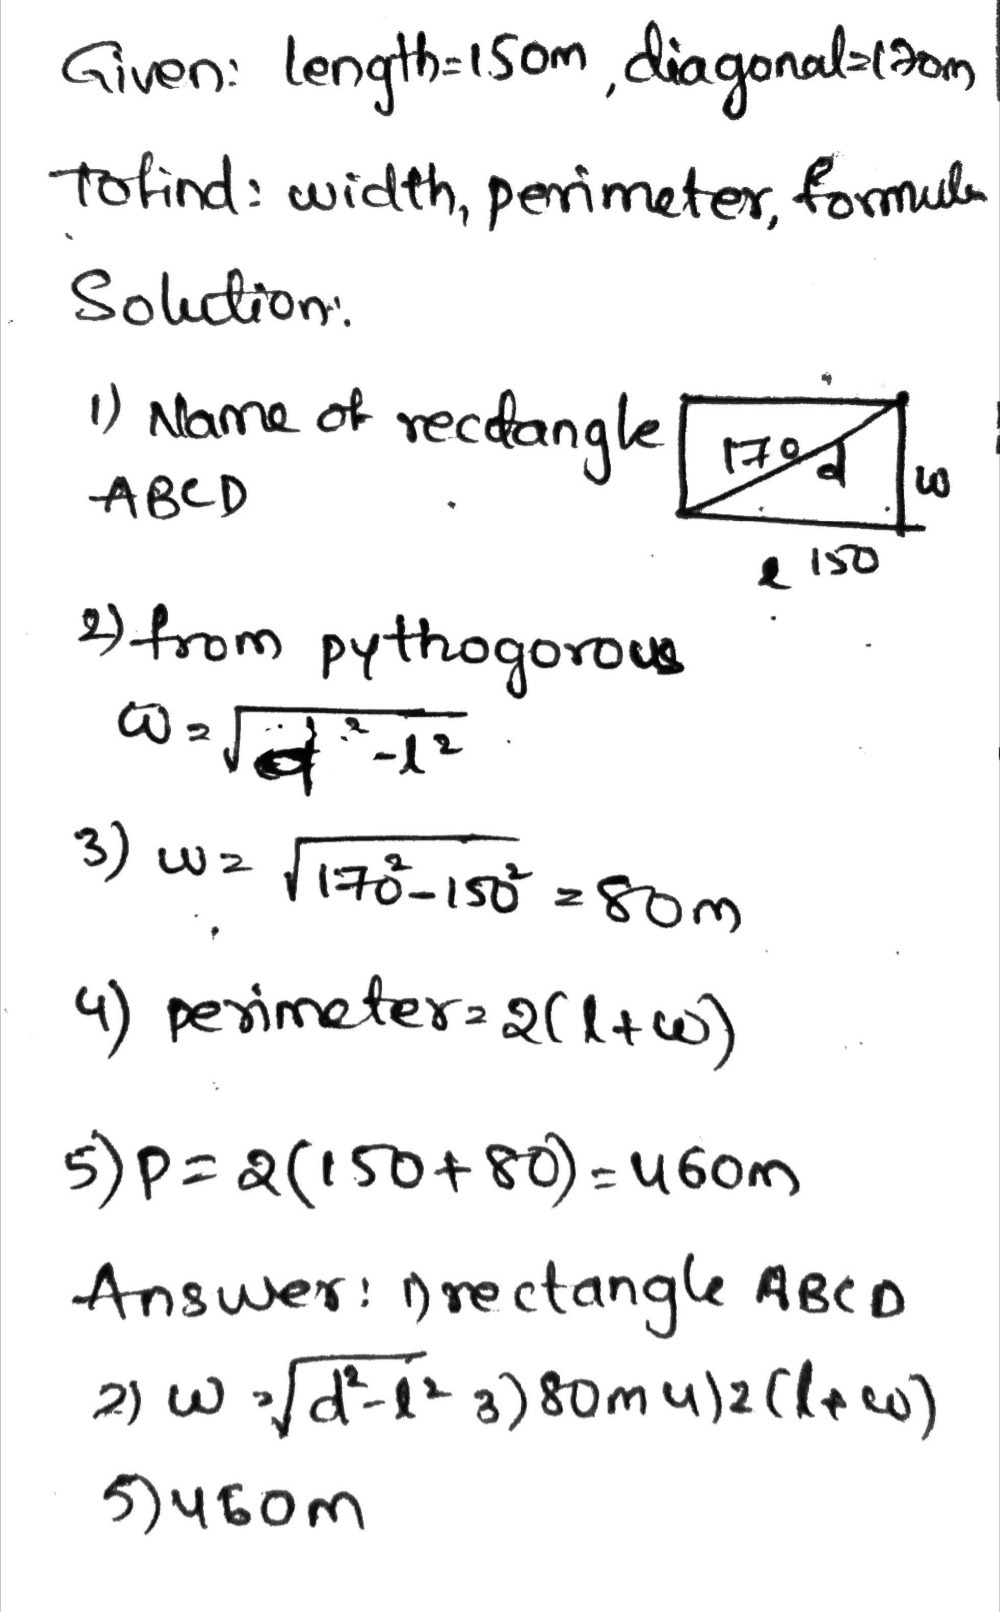 Given: length=150m, diagonal=170m
To find: width, perimeter, formula
Solution:
1) Name of rectangle
ABCD
170 d
w
l 150
2) from pythogorous
w=√d²-l²
3) w= √170²-150² =80m
4) perimeter=2(l+w)
5) P=2(150+80)=460m
Answer: 1) rectangle ABCD
2) w=√d²-l² 3) 80m 4) 2(l+w)
5) 460m